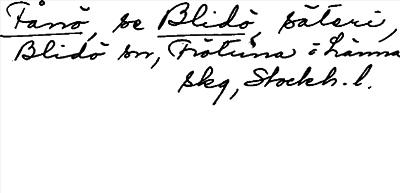 Fånö, se Blidö, säteri,
Blidö sn, Frötuna o Länna
skg, Stockh. l.